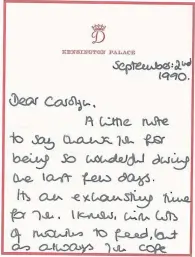 D
KENSINGTON PALACE
September: 2nd
1990.
Dear Carolyn.
A little note
to say thank you for
being so wonderful during
the last few days.
Its an exhausting time
for you. I know, with lots
of mouths to feed, but
as always you cope